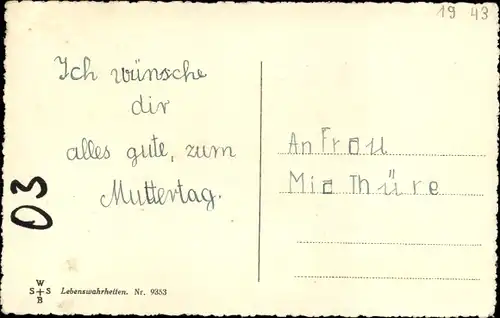 19 43
Ich wünsche
dir
alles gute, zum
Muttertag.
An Frau
Mia Thüre
03
W
S + S
B
Lebenswahrheiten. Nr. 9353